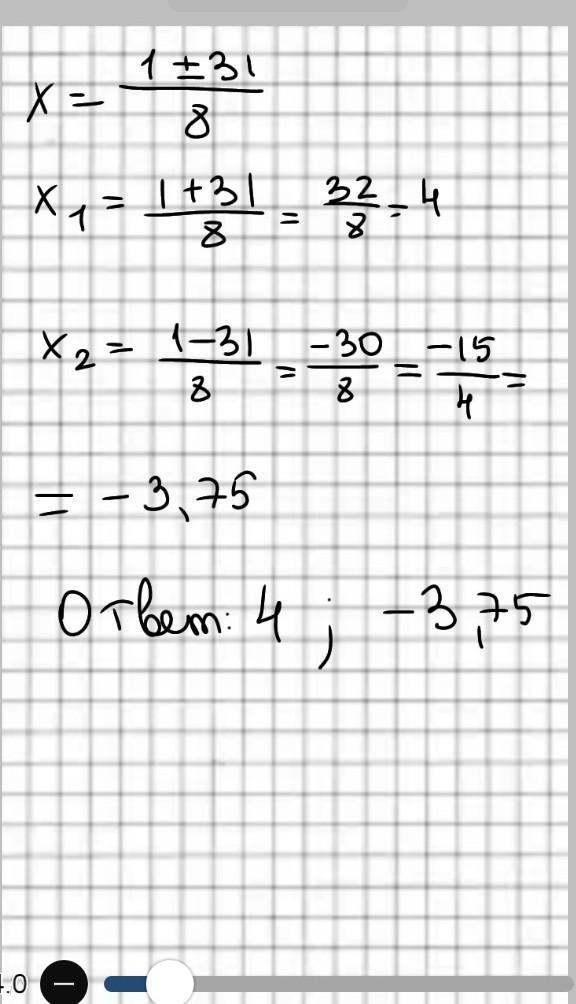 x = (1 ± 31)/8
x₁ = (1 + 31)/8 = 32/8 = 4
x₂ = (1 − 31)/8 = −30/8 = −15/4 =
= −3,75
Ответ: 4 ; −3,75